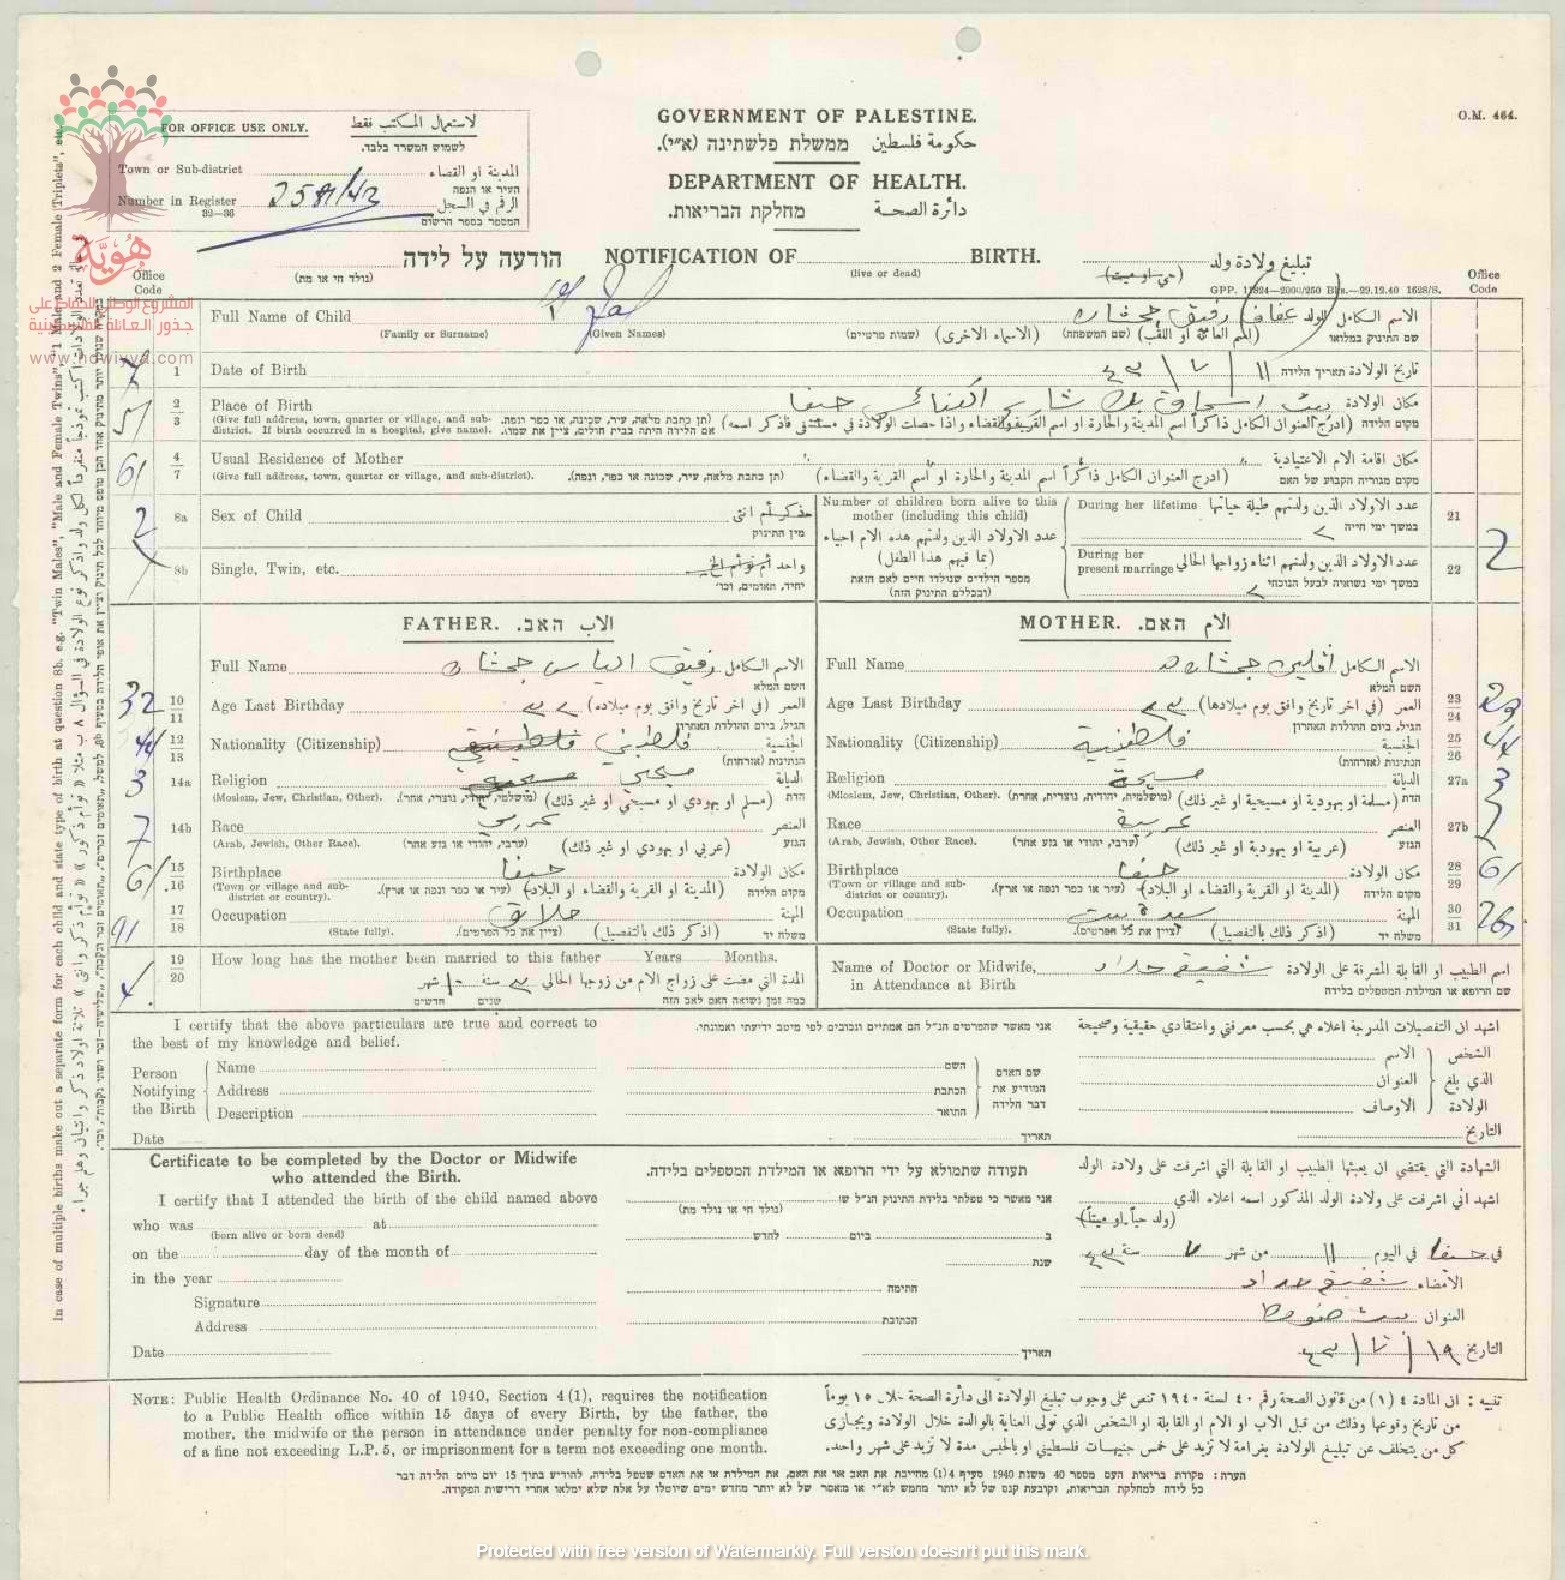 GOVERNMENT OF PALESTINE.
حكومة فلسطين ממשלת פלשתינה (א״י).
DEPARTMENT OF HEALTH.
دائرة الصحة מחלקת הבריאות.
O.M. 464.
FOR OFFICE USE ONLY. لاستعمال المكتب فقط
לשמוש המשרד בלבד.
Town or Sub-district المدينة او القضاء
העיר או הנפה
Number in Register الرقم في السجل
32—36
המספר בספר הרשום
הודעה על לידה NOTIFICATION OF BIRTH. تبليغ ولادة ولد
(נולד חי או מת) (live or dead) (حي او ميت)
GPP. 11824—2000/250 Bks.—29.12.40 1628/S.
Office Code
Office Code
هُوِيَّة
المشروع الوطني للحفاظ على
جذور العائلة الفلسطينية
www.howiyya.com
Full Name of Child رفيق جمشان الاسم الكامل للولد
(Family or Surname) (Given Names) (שמות פרטיים) (الاسماء الاخرى) (שם המשפחה) (اسم العائلة او اللقب) שם התינוק במלואו
7 1 Date of Birth ١١ / ٧ / ٤٣ تاريخ الولادة תאריך הלידה
2/3 Place of Birth حيفا مكان الولادة
(Give full address, town, quarter or village, and sub-district. If birth occurred in a hospital, give name). (תן כתבת מלאה, עיר, שכונה, או כפר ונפה. אם הלידה היתה בבית חולים, ציין את שמו). (ادرج العنوان الكامل ذاكراً اسم المدينة والحارة او اسم القرية والقضاء واذا حصلت الولادة في مستشفى فاذكر اسمه) מקום הלידה
61 4/7 Usual Residence of Mother " " " مكان اقامة الام الاعتيادية
(Give full address, town, quarter or village, and sub-district). (תן כתבת מלאה, עיר, שכונה או כפר, ונפה). (ادرج العنوان الكامل ذاكراً اسم المدينة والحارة او اسم القرية والقضاء) מקום מגוריה הקבוע של האם
2 8a Sex of Child ذكر أم انثى
מין התינוק
8b Single, Twin, etc. واحد
יחיד, תאומים, וכו׳
Number of children born alive to this mother (including this child)
عدد الاولاد الذين ولدتهم هذه الام احياء
(بما فيهم هذا الطفل)
מספר הילדים שנולדו חיים לאם הזאת
(ובכללם התינוק הזה)
During her lifetime عدد الاولاد الذين ولدتهم طيلة حياتها 21
במשך ימי חייה ٢
During her present marriage عدد الاولاد الذين ولدتهم اثناء زواجها الحالي 22 2
במשך ימי נשואיה לבעל הנוכחי ٢
FATHER. האב. الاب
Full Name رفيق الياس جمشان الاسم الكامل
השם המלא
32 10/11 Age Last Birthday ٣٢ العمر (في اخر تاريخ وافق يوم ميلاده)
הגיל, ביום ההולדת האחרון
12/13 Nationality (Citizenship) فلسطيني الجنسية
הנתינות (אזרחות)
3 14a Religion مسيحي الديانة
(Moslem, Jew, Christian, Other). (מושלמי, יהודי, נוצרי, אחר). (مسلم او يهودي او مسيحي او غير ذلك) הדת
7 14b Race عربي العنصر
(Arab, Jewish, Other Race). (ערבי, יהודי או גזע אחר) (عربي او يهودي او غير ذلك) הגזע
61 15/16 Birthplace حيفا مكان الولادة
(Town or village and sub-district or country). (עיר או כפר ונפה או ארץ). (المدينة او القرية والقضاء او البلاد) מקום הלידה
91 17/18 Occupation حلاق المهنة
(State fully). (ציין את כל הפרטים). (اذكر ذلك بالتفصيل) משלח יד
19/20 How long has the mother been married to this father Years Months.
المدة التي مضت على زواج الام من زوجها الحالي ٣ سنة ١٠ شهر
כמה זמן נשואה האם לאב הזה שנים חדשים
MOTHER. האם. الام
Full Name جمشان الاسم الكامل
השם המלא
Age Last Birthday ٢٣ العمر (في اخر تاريخ وافق يوم ميلادها) 23/24 23
הגיל, ביום ההולדת האחרון
Nationality (Citizenship) فلسطينية الجنسية 25/26
הנתינות (אזרחות)
Religion مسيحية الديانة 27a 3
(Moslem, Jew, Christian, Other). (מושלמית, יהודית, נוצרית, אחרת) (مسلمة او يهودية او مسيحية او غير ذلك) הדת
Race عربية العنصر 27b
(Arab, Jewish, Other Race). (ערבי, יהודי או גזע אחר) (عربية او يهودية او غير ذلك) הגזע
Birthplace حيفا مكان الولادة 28/29 61
(Town or village and sub-district or country). (עיר או כפר ונפה או ארץ). (المدينة او القرية والقضاء او البلاد) מקום הלידה
Occupation سيدة بيت المهنة 30/31
(State fully). (ציין את כל הפרטים). (اذكر ذلك بالتفصيل) משלח יד
Name of Doctor or Midwife, in Attendance at Birth شفيقة حداد اسم الطبيب او القابلة المشرفة على الولادة
שם הרופא או המילדת המטפלים בלידה
I certify that the above particulars are true and correct to the best of my knowledge and belief.
אני מאשר שהפרטים הנ״ל הם אמתיים ונכונים לפי מיטב ידיעתי ואמונתי.
اشهد ان التفصيلات المدرجة اعلاه هي بحسب معرفتي واعتقادي حقيقية وصحيحة
Person Notifying the Birth
Name השם الاسم
Address הכתבת العنوان
Description התואר الاوصاف
שם האדם המודיע את דבר הלידה
الشخص الذي بلغ الولادة
Date תאריך التاريخ
Certificate to be completed by the Doctor or Midwife who attended the Birth.
תעודה שתמולא על ידי הרופא או המילדת המטפלים בלידה.
الشهادة التي يقتضي ان يعبئها الطبيب او القابلة التي اشرفت على ولادة الولد
I certify that I attended the birth of the child named above
אני מאשר כי טפלתי בלידת התינוק הנ״ל ש
اشهد اني اشرفت على ولادة الولد المذكور اسمه اعلاه الذي
who was at
(born alive or born dead) (נולד חי או נולד מת) (ولد حياً او ميتاً)
on the day of the month of ב ביום לחדש في حيفا في اليوم ١١ من شهر ٧ سنة ٤٣
in the year שנת
Signature חתימה الامضاء شفيقة حداد
Address הכתובת العنوان بيت
Date תאריך التاريخ ١٩ / ٧ / ٤٣
NOTE: Public Health Ordinance No. 40 of 1940, Section 4 (1), requires the notification
to a Public Health office within 15 days of every Birth, by the father, the
mother, the midwife or the person in attendance under penalty for non-compliance
of a fine not exceeding L.P. 5, or imprisonment for a term not exceeding one month.
تنبيه : ان المادة ٤ (١) من قانون الصحة رقم ٤٠ لسنة ١٩٤٠ تنص على وجوب تبليغ الولادة الى دائرة الصحة خلال ١٥ يوماً
من تاريخ وقوعها وذلك من قبل الاب او الام او القابلة او الشخص الذي تولى العناية بالوالدة خلال الولادة ويجازى
كل من يتخلف عن تبليغ الولادة بغرامة لا تزيد على خمس جنيهات فلسطيني او بالحبس مدة لا تزيد على شهر واحد.
הערה: פקודת בריאות העם מספר 40 משנת 1940 סעיף 4(1) מחייבת את האב או את האם, את המילדת או את האדם שטפל בלידה, להודיע בתוך 15 יום מיום הלידה דבר
כל לידה למחלקת הבריאות, וקובעת קנס של לא יותר מחמש לא״י או מאסר של לא יותר מחדש ימים שיוטלו על אלה שלא ימלאו אחרי דרישות הפקודה.
In case of multiple births make out a separate form for each child and state type of birth at question 8b. e.g. "Twin Males", "Male and Female Twins", "1 Male and 2 Female Triplets", etc.
Protected with free version of Watermarkly. Full version doesn't put this mark.